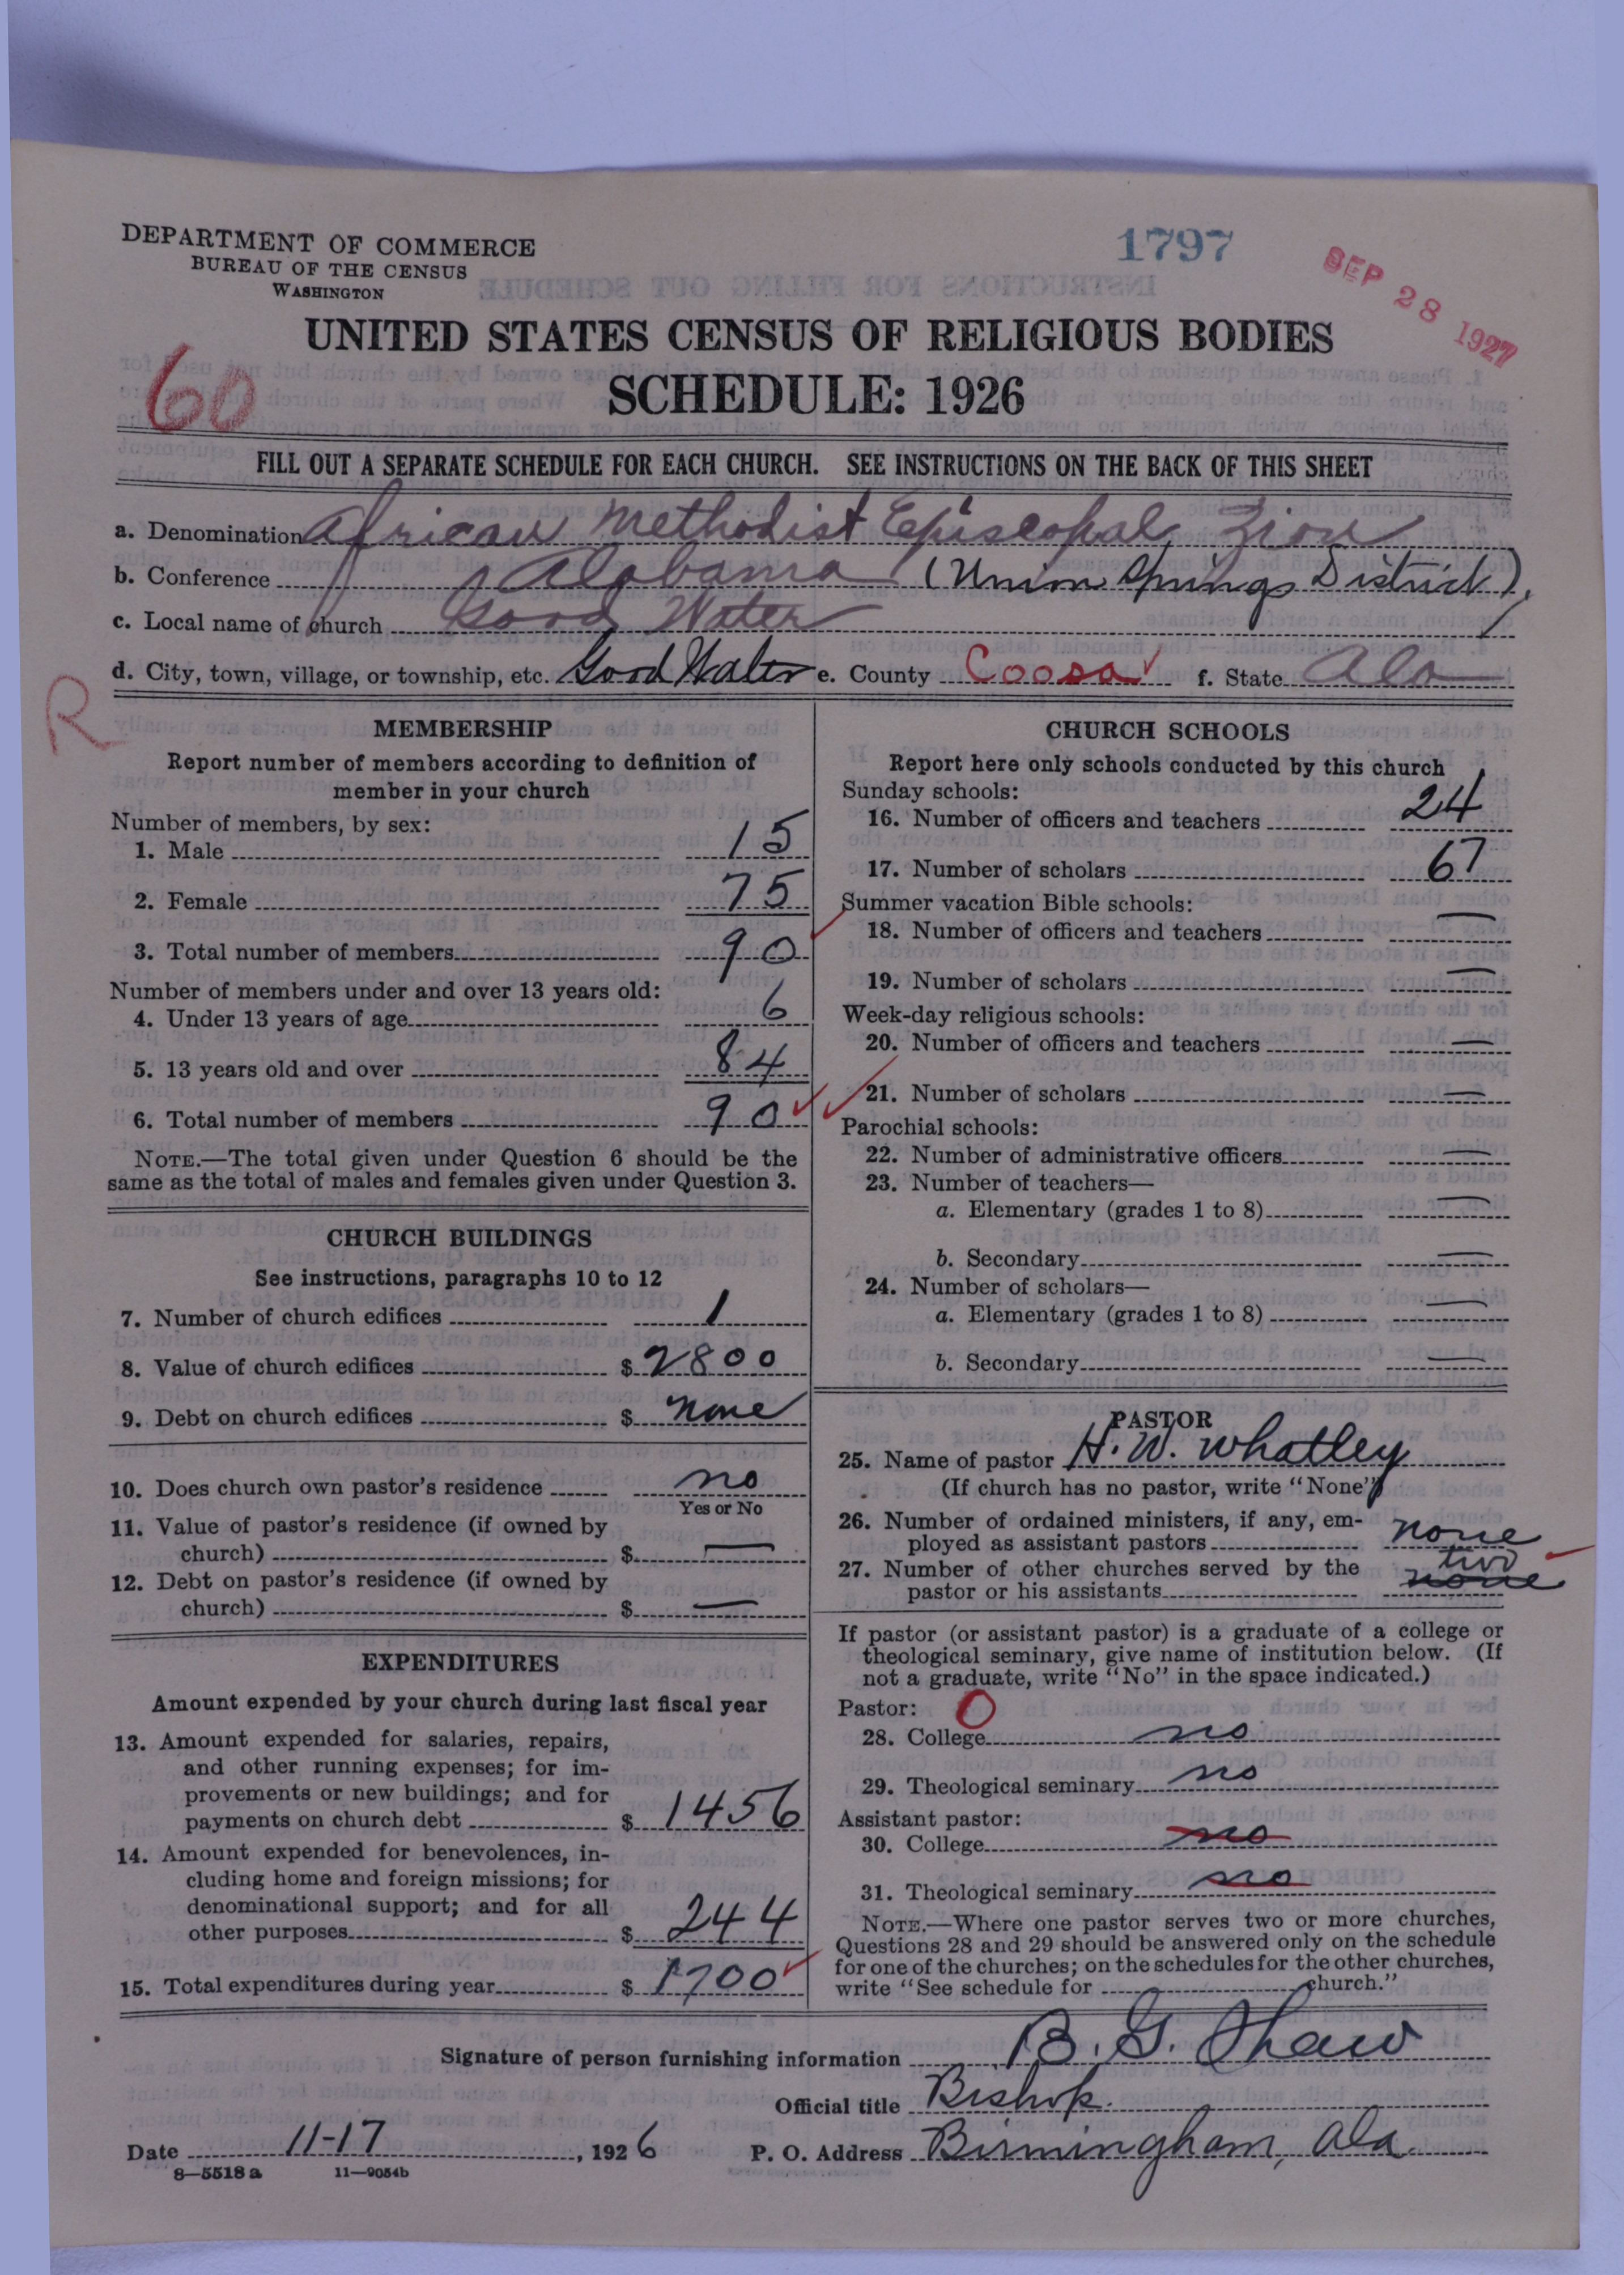 DEPARTMENT OF COMMERCE
BUREAU OF THE CENSUS
WASHINGTON
1797
SEP 28 1927
UNITED STATES CENSUS OF RELIGIOUS BODIES
60
SCHEDULE: 1926
FILL OUT A SEPARATE SCHEDULE FOR EACH CHURCH. SEE INSTRUCTIONS ON THE BACK OF THIS SHEET
a. Denomination African Methodist Episcopal Zion
b. Conference Alabama (Union Springs District)
c. Local name of church Good Water
d. City, town, village, or township, etc. Good Water e. County Coosa f. State Ala
R
MEMBERSHIP
Report number of members according to definition of
member in your church
Number of members, by sex:
1. Male 15
2. Female 75
3. Total number of members 90
Number of members under and over 13 years old:
4. Under 13 years of age 6
5. 13 years old and over 84
6. Total number of members 90
NOTE.—The total given under Question 6 should be the
same as the total of males and females given under Question 3.
CHURCH BUILDINGS
See instructions, paragraphs 10 to 12
7. Number of church edifices 1
8. Value of church edifices $ 2800
9. Debt on church edifices $ none
10. Does church own pastor's residence no
Yes or No
11. Value of pastor's residence (if owned by
church) $ —
12. Debt on pastor's residence (if owned by
church) $ —
EXPENDITURES
Amount expended by your church during last fiscal year
13. Amount expended for salaries, repairs,
and other running expenses; for im-
provements or new buildings; and for
payments on church debt $ 1456
14. Amount expended for benevolences, in-
cluding home and foreign missions; for
denominational support; and for all
other purposes $ 244
15. Total expenditures during year $ 1700
CHURCH SCHOOLS
Report here only schools conducted by this church
Sunday schools:
16. Number of officers and teachers 24
17. Number of scholars 67
Summer vacation Bible schools:
18. Number of officers and teachers —
19. Number of scholars —
Week-day religious schools:
20. Number of officers and teachers —
21. Number of scholars —
Parochial schools:
22. Number of administrative officers —
23. Number of teachers—
a. Elementary (grades 1 to 8) —
b. Secondary —
24. Number of scholars—
a. Elementary (grades 1 to 8) —
b. Secondary —
PASTOR
25. Name of pastor H. W. Whatley
(If church has no pastor, write "None")
26. Number of ordained ministers, if any, em-
ployed as assistant pastors none
27. Number of other churches served by the two
pastor or his assistants none
If pastor (or assistant pastor) is a graduate of a college or
theological seminary, give name of institution below. (If
not a graduate, write "No" in the space indicated.)
Pastor: 0
28. College no
29. Theological seminary no
Assistant pastor:
30. College no
31. Theological seminary no
NOTE.—Where one pastor serves two or more churches,
Questions 28 and 29 should be answered only on the schedule
for one of the churches; on the schedules for the other churches,
write "See schedule for church."
Signature of person furnishing information B. G. Shaw
Official title Bishop.
Date 11-17, 1926 P. O. Address Birmingham, Ala.
8—5518 a 11—9054b